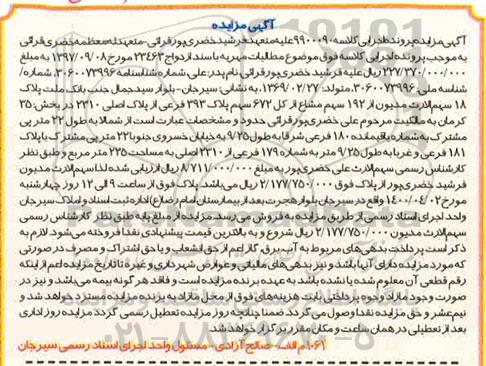 آگهی مزایده
آگهی مزایده پرونده اجرایی کلاسه ۹۹۰۰۰۹۰ علیه متعهد فرشید خضری پور قرائی - متعهدله معظمه خضری قرائی
به موجب پرونده اجرایی کلاسه فوق موضوع مطالبات مهریه با سند ازدواج ۲۳۴۶۳ مورخ ۱۳۹۷/۰۹/۰۸ به مبلغ
۲۲۷/۳۷۰/۰۰۰/۰۰۰ ریال علیه فرشید خضری پور قرائی نام پدر: علی، شماره شناسنامه ۳۰۶۰۰۷۳۹۹۶، شماره/
شناسه ملی: ۳۰۶۰۰۷۳۹۹۶، متولد: ۱۳۶۹/۰۲/۲۷، به نشانی: سیرجان - بلوار سید جمال جنب بانک ملت پلاک
۱۸ سهم الارث مدیون از ۱۹۲ سهم مشاع از کل ۶۷۲ سهم پلاک ۳۹۳ فرعی از پلاک اصلی ۲۳۱۰ در بخش: ۳۵
کرمان به مالکیت مرحوم علی خضری پور قرائی حدود و مشخصات عبارت است از شمالا به طول ۲۲ متر پی
مشترک به شماره باقیمانده ۱۸۰ فرعی شرقا به طول ۹/۲۵ به خیابان خسروی جنوبا ۲۲ متر پی مشترک با پلاک
۱۸۱ فرعی و غربا به طول ۹/۲۵ متر به شماره ۱۷۹ فرعی از ۲۳۱۰ اصلی به مساحت ۲۲۵ متر مربع و طبق نظر
کارشناس رسمی سهم الارث علی خضری پور به مبلغ ۸/۷۱۱/۰۰۰/۰۰۰ ریال ارزیابی شده لذا سهم الارث مدیون
فرشید خضری پور از پلاک فوق ۲/۱۷۷/۷۵۰/۰۰۰ ریال می باشد. پلاک فوق از ساعت ۹ الی ۱۲ روز چهارشنبه
مورخ ۱۴۰۰/۰۴/۰۲ واقع در سیرجان بلوار هجرت بعد از بیمارستان امام رضا(ع) اداره ثبت اسناد و املاک سیرجان
واحد اجرای اسناد رسمی از طریق مزایده به فروش می رسد. مزایده از مبلغ پایه طبق نظر کارشناس رسمی
سهم الارث مدیون ۲/۱۷۷/۷۵۰/۰۰۰ ریال شروع و به بالاترین قیمت پیشنهادی نقدا فروخته می شود. لازم به
ذکر است پرداخت بدهی های مربوط به آب، برق، گاز اعم از حق انشعاب و یا حق اشتراک و مصرف در صورتی
که مورد مزایده دارای آنها باشد و نیز بدهی های مالیاتی و عوارض شهرداری و غیره تا تاریخ مزایده اعم از اینکه
رقم قطعی آن معلوم شده یا نشده باشد به عهده برنده مزایده است و فاقد هر گونه بیمه می باشد و نیز در
صورت وجود مازاد وجوه پرداختی بابت هزینه های فوق از محل مازاد به برنده مزایده مسترد خواهد شد و
نیم عشر و حق مزایده نقدا وصول می گردد. ضمنا چنانچه روز مزایده تعطیل رسمی گردد مزایده روز اداری
بعد از تعطیلی در همان ساعت و مکان مقرر برگزار خواهد شد.
۱۰۶۱ م الف - صالح آزادی - مسئول واحد اجرای اسناد رسمی سیرجان